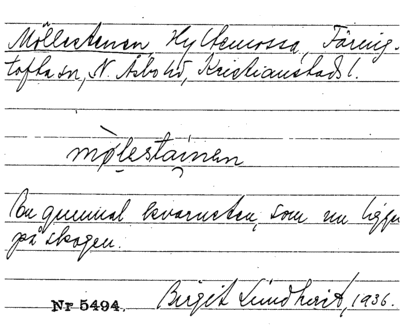 Möllestenen, Hyltemossa, Färing-
tofta sn, N. Åsbo hd, Kristianstads l.
mølestainen
En gammal kvarnsten, som nu ligger
på skogen.
Nr 5494. Birgit Lindquist, 1936.